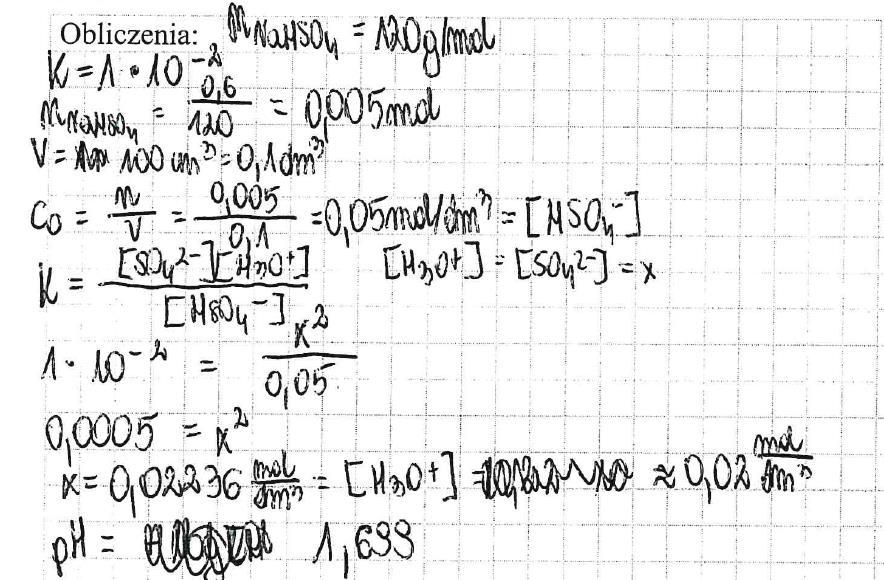 Obliczenia: M NaHSO4 = 120g/mol
K = 1 · 10^-2
n NaHSO4 = 0,6/120 = 0,005 mol
V = 100 cm³ = 0,1 dm³
C0 = n/V = 0,005/0,1 = 0,05 mol/dm³ = [HSO4⁻]
K = [SO4²⁻][H3O⁺]/[HSO4⁻] [H3O⁺] = [SO4²⁻] = x
1 · 10^-2 = x²/0,05
0,0005 = x²
x = 0,02236 mol/dm³ = [H3O⁺] ≈ 0,02 mol/dm³
pH = 1,699